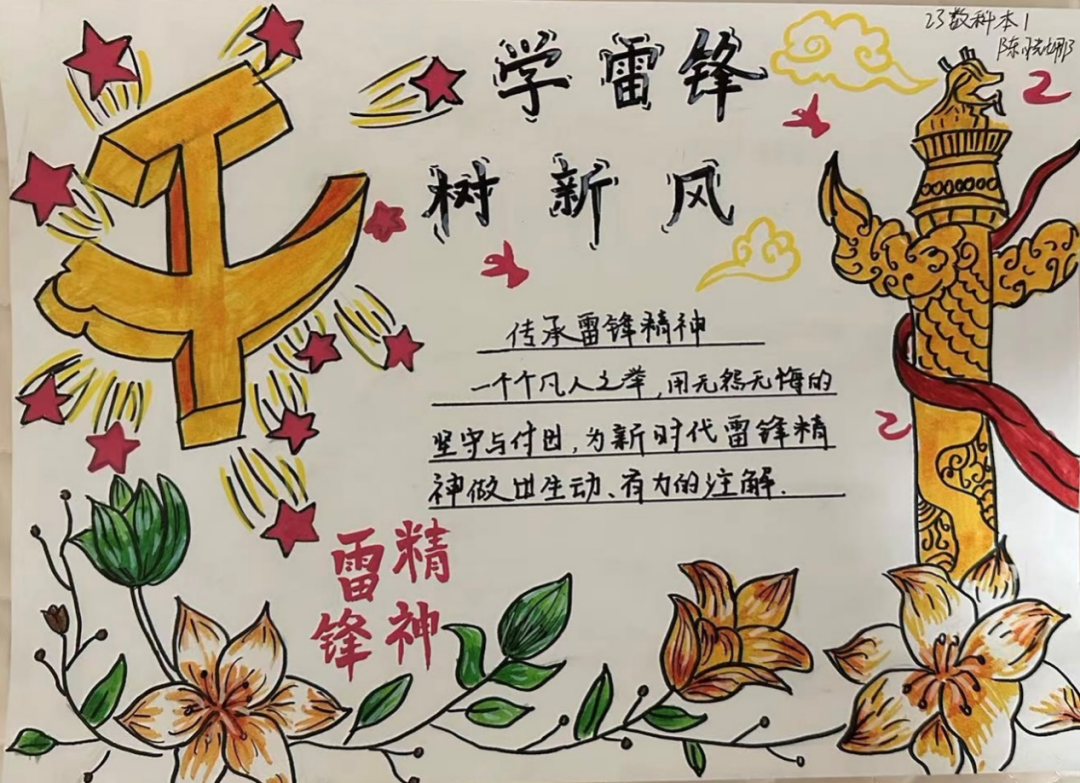 23数科本1
陈晓娜
学雷锋
树新风
传承雷锋精神
一个个凡人之举,用无怨无悔的
坚守与付出,为新时代雷锋精
神做出生动、有力的注解.
雷锋
精神